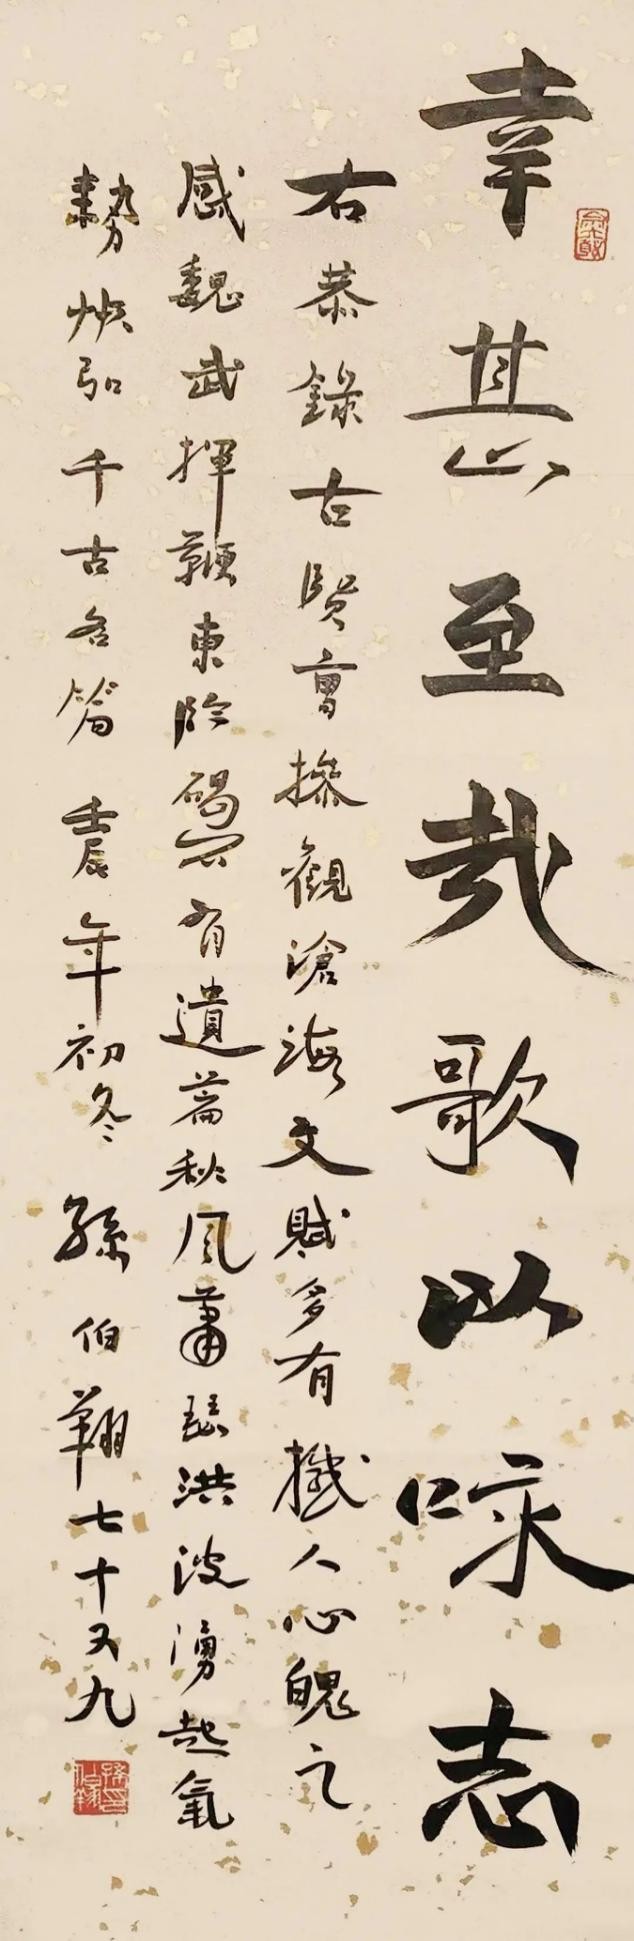 幸甚至哉歌以咏志
右恭錄古賢曹操觀滄海文賦多有撼人心魄之
感魏武揮鞭東臨碣石有遺篇秋風蕭瑟洪波湧起氣
勢恢弘千古名篇壬辰年初冬孫伯翔七十又九